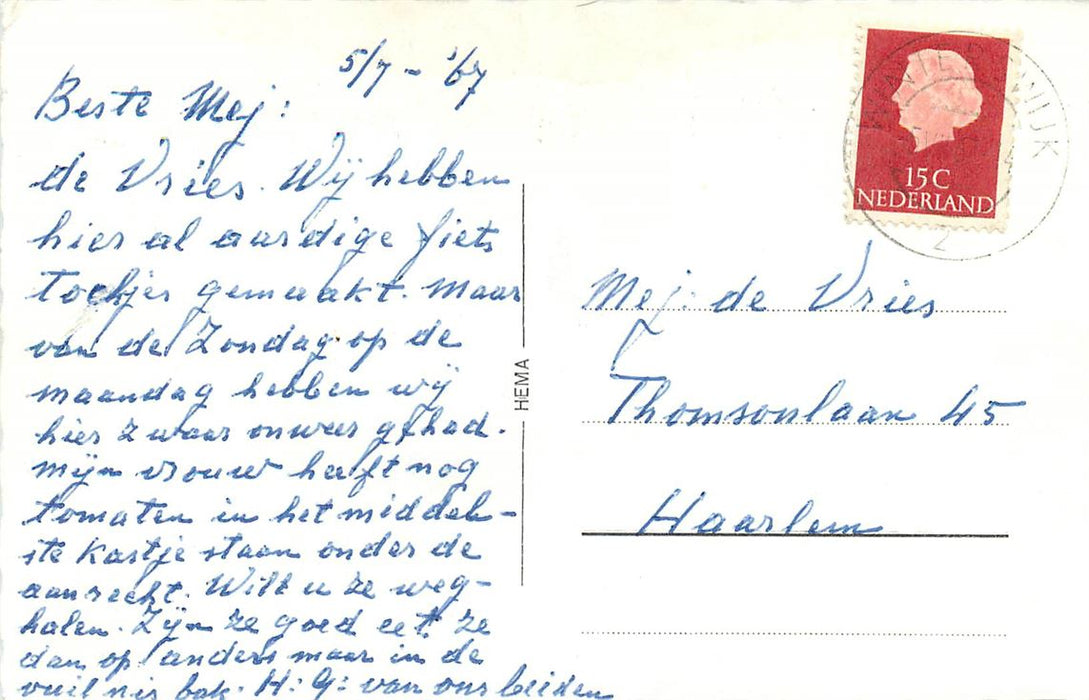 5/7 - '67
Beste Mej:
de Vries. Wij hebben
hier al aardige fiets
tochjes gemaakt. Maar
van de Zondag op de
maandag hebben wij
hier zwaar onweer gehad.
Mijn vrouw heeft nog
tomaten in het middel-
ste kastje staan onder de
aanrecht. Wilt u ze weg-
halen. Zijn ze goed eet ze
dan op anders maar in de
vuilnis bak. H: G: van ons beiden
HEMA
15C
NEDERLAND
WINTERSWIJK
2
Mej: de Vries
Thomsonlaan 45
Haarlem